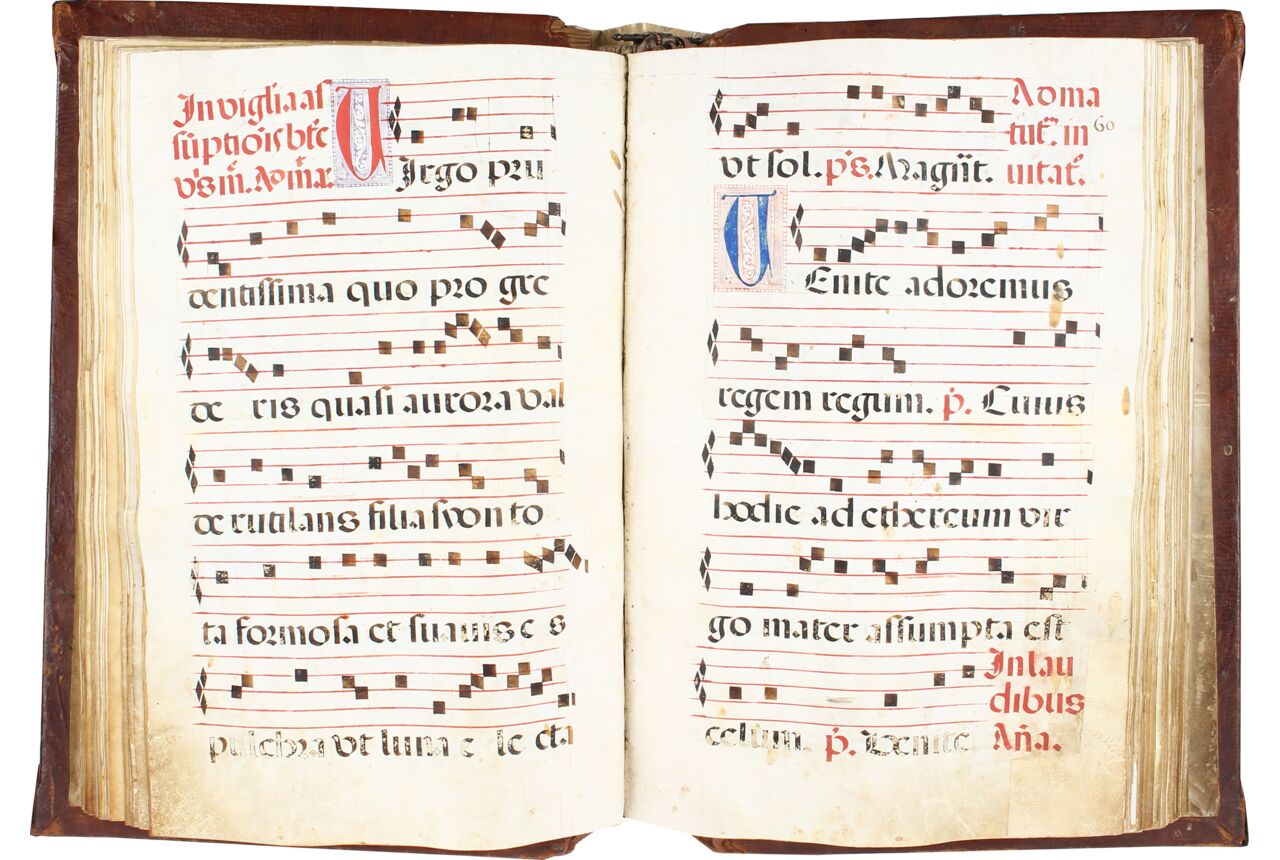 In vigilia as
sūptiōis btē
v̄gis m̄. Ad m̄a:
VIrgo pru
dentissima quo pro gre
de ris quasi aurora val
de rutilans filia syon to
ta formosa et suavis e s
pulchra ut luna e le cta
ut sol. p̄s. Magn̄t. Ad ma
tut̄. in
vitat̄.
60
VEnite adoremus
regem regum. p̄. Cuius
hodie ad ethereum vir
go mater assumpta est
celum. p̄. Venite In lau
dibus
Añā.